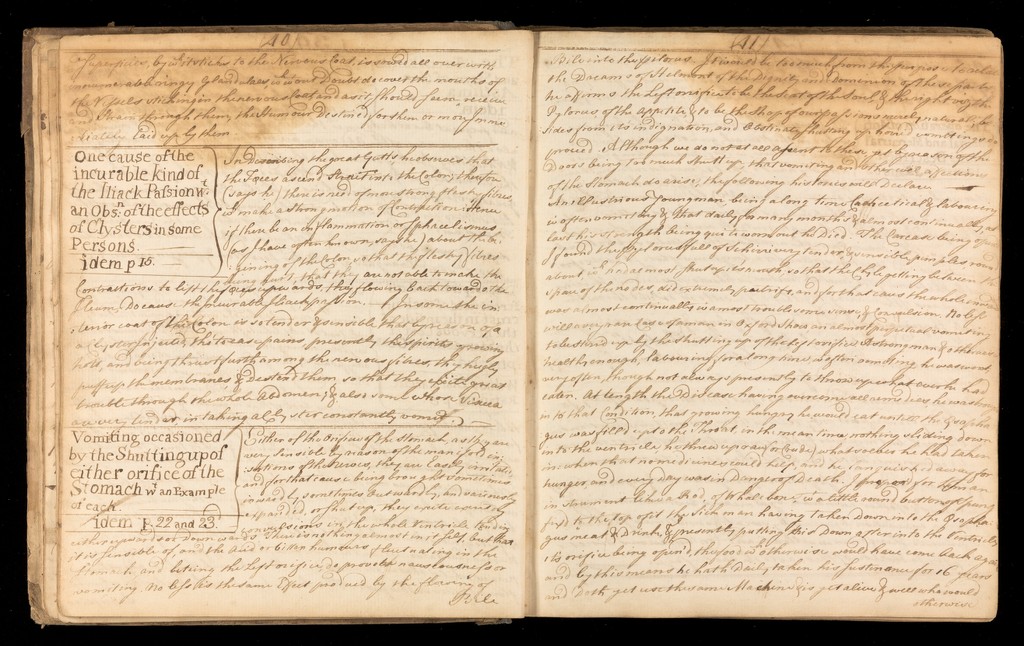 (40)
Coat, is sowed all over with
innumerable Glandules
the Vessels sticking in the nervous Coat and as it should seem receive
and strain through them, the humour Destined for them or more imme
diately Laid up by them
One cause of the
incurable kind of
the Iliack Passion wt.
an Obsn. of the effects
of Clysters in some
Persons
idem p 15.
In Describing the great Gutts he observes that
the Fæces ascend the Colon, therefore
(says he) there is need of more strong fleshy fibres,
to make a strong motion of Contraction. Hence
if there be an Inflammation or Sphacelismus
(as I have often known, says he) about the be=
gining of the Colon, so that the fleshy fibres
being hurt, that they are not able to make the
Contractions to lift the fæces upwards, they flowing back towards the
Ileum, Do cause the incurable Iliack passion. In some the in=
terior coat of the Colon is so tender & sensible that by reason of a
Clyster injected, the presently the Spirits growing
hott, and being thrust forth among the nervous fibres, they highly
puff up the membranes & Distend them, so that they excite great
trouble through the whole Abdomen; & also some whose Viscera
are very tender, in taking a Clyster constantly vomit.
Vomiting occasioned
by the Shutting up of
either orifice of the
Stomach wt. an Example
of each.
idem p. 22 and 23
Either of the Orifices of the Stomach, as they are
very sensible by reason of the manifold in=
sertions of the Nerves, they are Easily irritated
and for that cause being brought sometimes
inwardly, sometimes outwardly, and variously
expanded, or shut up, they excite cruelly
convulsions in the whole Ventricle tending
either upwards or downwards. There is nothing almost in it self, but that
it is sensible of and the acid or bitter humours fluctuating in the
Stomach, and biting the Left orifice do provoke nauseousness or
vomiting. No less is the same Effect produced by the flowing of
Bile
(41)
Bile into the pylorus. It would be too much from the purpose to relate
the Dreams of Helmont of the Dignity and Dominion of these parts
he affirms the Left orifice to be the Seat of the Soul & the right or the
Pylorus of the Appetite & to be the Shop of our passions meerly natural, be
sides from its indignation, and obstinate shutting up, how vomiting is
proved. Although we do not at all assent to these, yet by reason of the
Doors being too much shutt up, that vomiting and other evil affections
of the Stomach do arise, the following histories will Declare
An illustrious young man being a long time Cachectical & labouring
wt. often vomiting & that daily for many months & almost continually, at
last his strength being quite worn out he Died. The Carcase being open
I found the Pylorus full of tender & sensible pimples round
about, wch. had almost shut up its so that the Chyle getting between
space of the nodes, did extremely putrify, and for that cause the whole
was almost continually in a most troublesome & Convulsion. No less
will a very rare Case of a man in Oxford Show an almost perpetual vomiting
to be stirred up by the shutting up of the Left orifice A strong man & otherwise
healthy enough, labouring for a long time, wt. often vomiting he was wont
very often, though not always presently to throw up what ever he had
eaten. At length the Disease having overcome all remedies he was brought
in to that Condition, that growing hungry he would eat untill the Oesopha
gus was filled up to the Throat in the mean time nothing sliding down
into the ventricle, he threw up raw (or crude) what soever he had taken
in: when that no medicines could help, and he languished away for
hunger, and every day was in Danger of Death, I prepared for a man
an instrument Like a Rod, of Whale bone, wt. a little round button of Spung
fixed to the top of it the Sick man having taken Down into the Oesopha
gus meat & Drink, & presently putting this Down after into the Ventricle
its orifice being opened, the food wch. otherwise would have come back again
and by this means he hath Daily taken his sustenance for 16 years
and Doth yet use the same Machine & is yet alive & well who would
otherwise